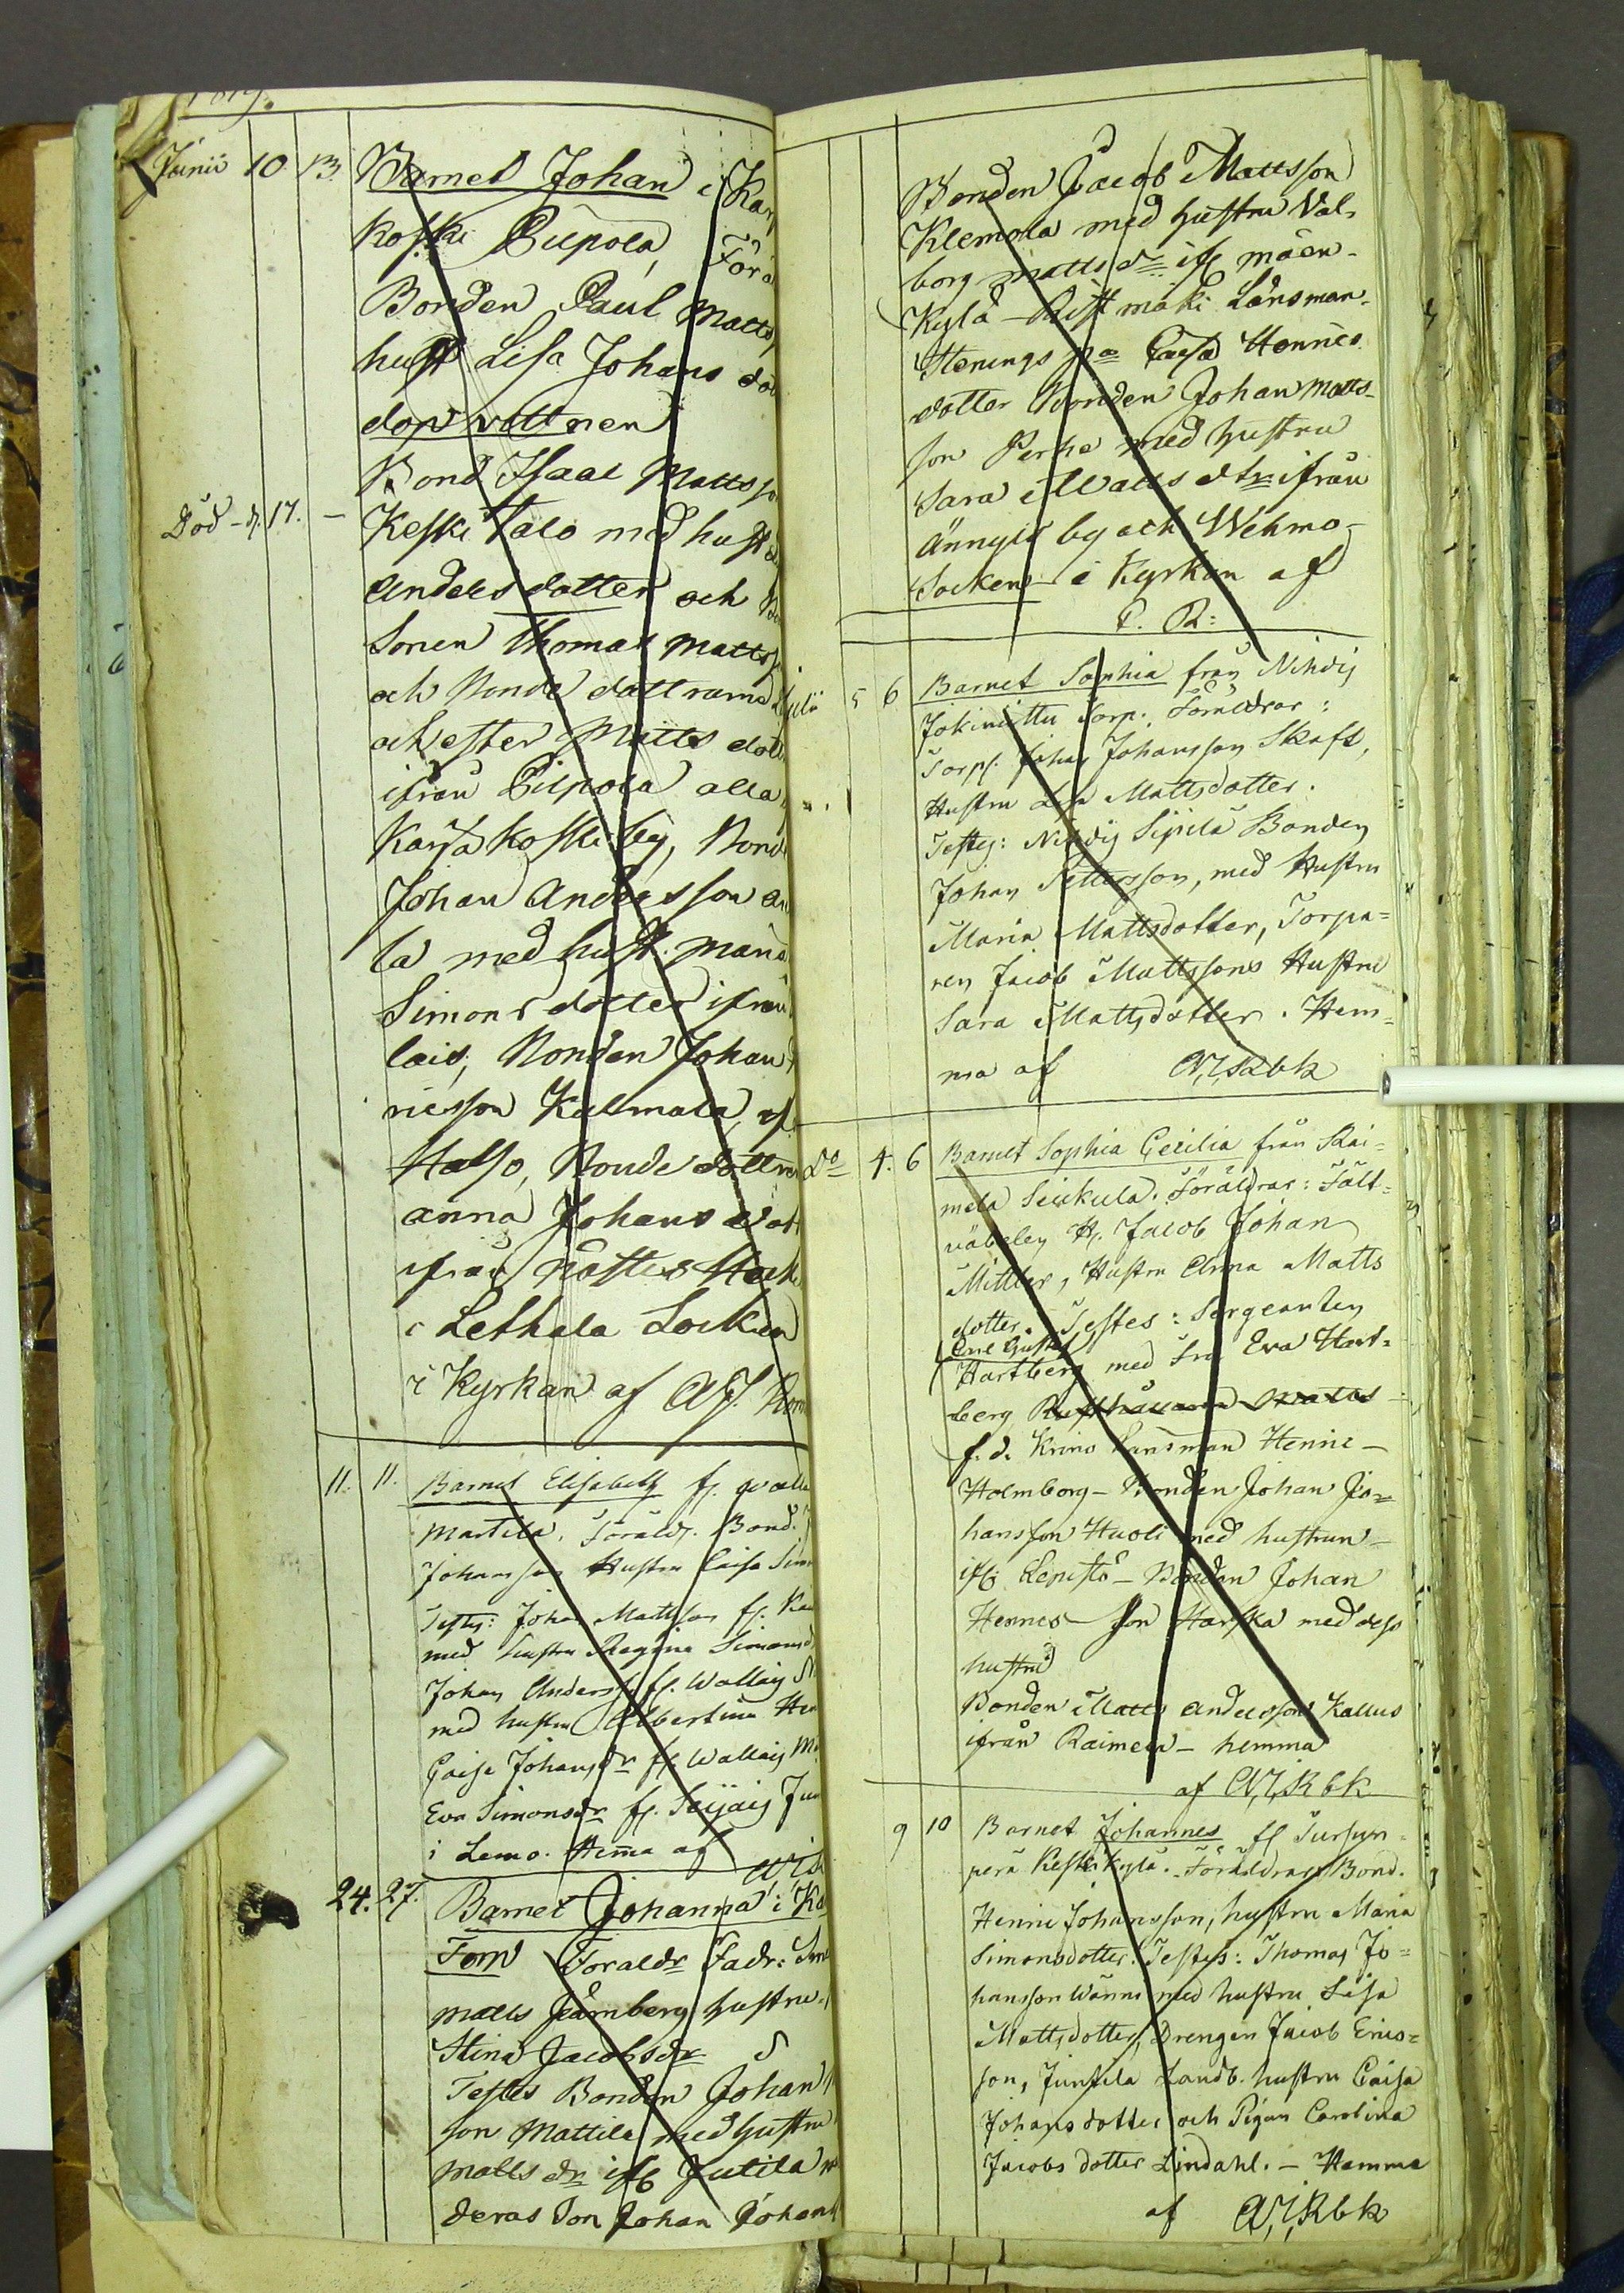 1819.
Junii 10 13. Barnet Johan i Kar
koski Piipola, Förä
Bonden Paul Matts
hust Lisa Johans dot
dop vittnen
Bond Isaac Mattsso
Död - d. 17. - Keski Talo med hust
Anders dotter och Bo
Sonen Thomas Matts
och Bonde dottrarna
och ester Matts dot
ifrån Piipola alla
Karjakoski by, Bond
Johan Andersson An
la med hust. Maria
Simons dotter ifrån
lais, Bonden Johan
ricsson Kulmala, if
Halso, Bonde dottren
anna Johans dot
ifrån
i Lethala Socken
i Kyrkan af
11. 11. Barnet Elisabeth fr. Walla
Martila, Föräldr. Bond.
Johansson Hustru Caisa Sim
Testes: Johan Mattsson fr. Kai
med hustru Regina Simonsd
Johan Anders fr. Wallais
med hustru Albertina Hen
Caisa Johansdr fr. Wallais M
Eva Simonsdr fr. Seijais Jun
i Lemo. Hemma af
24. 27. Barnet Johanna i Ko
Torp Foraldr Fadr: Sm
Matts Jernberg hustru
Stina Jacobsdr
Testes Bonden Johan
son Mattila med hustru
Matts dr ifr Jutila
deras Son Johan Johans
Bonden Jacob Mattsson
Klemola med hustru Val-
borg Matts dr ifr Mäen-
Kylä - Ristmäki Länsman
Henrics Caisa Hennes
dotter Bonden Johan Matts-
son Perhe med hustru
Sara Matts dtr ifrån
Ännylä by och Wehmo
Socken - i Kyrkan af
C. R:
5 6 Barnet Sophia från Nihdis
Jokiniittu Torp. Föräldrar:
Torp. Johan Johansson Skaft,
Hustru Lisa Mattsdotter.
Testes: Nihdis Sipilä Bonden
Johan Pettersson, med Hustru
Maria Mattsdotter, Torpa=
ren Jacob Mattssons Hustru
Sara Mattsdotter. Hem=
ma af
Do 4. 6 Barnet Sophia Cecilia från Rai=
mela Seikula. Föräldrar: Fält=
väbelen H. Jacob Johan
Mittler, Hustru Anna Matts
dotter. Testes: Sergeanten
Carl Gustaf
Hartberg med Fru Eva Hart=
berg
f. d. Krono Länsman Henric -
Holmborg - Bonden Johan Jo=
hansson Huoli med hustrun -
ifr Lepistö - Bonden Johan
Hennes - son Harska med dess
hustru
Bonden Matts Andersson Kallus
ifrån Raimela - hemma
af
9 10 Barnet Johannes fr Tursun=
perä Keskikylä. Föräldrar Bond.
Henric Johansson, hustru Maria
Simonsdotter. Testes: Thomas Jo=
hansson Wänni med hustru Lisa
Mattsdotter, Drengen Jacob Erics=
son, Junnila Landb. hustru Caisa
Johansdotter och Pigan Carolina
Jacobs dotter Lindahl. - Hemma
af